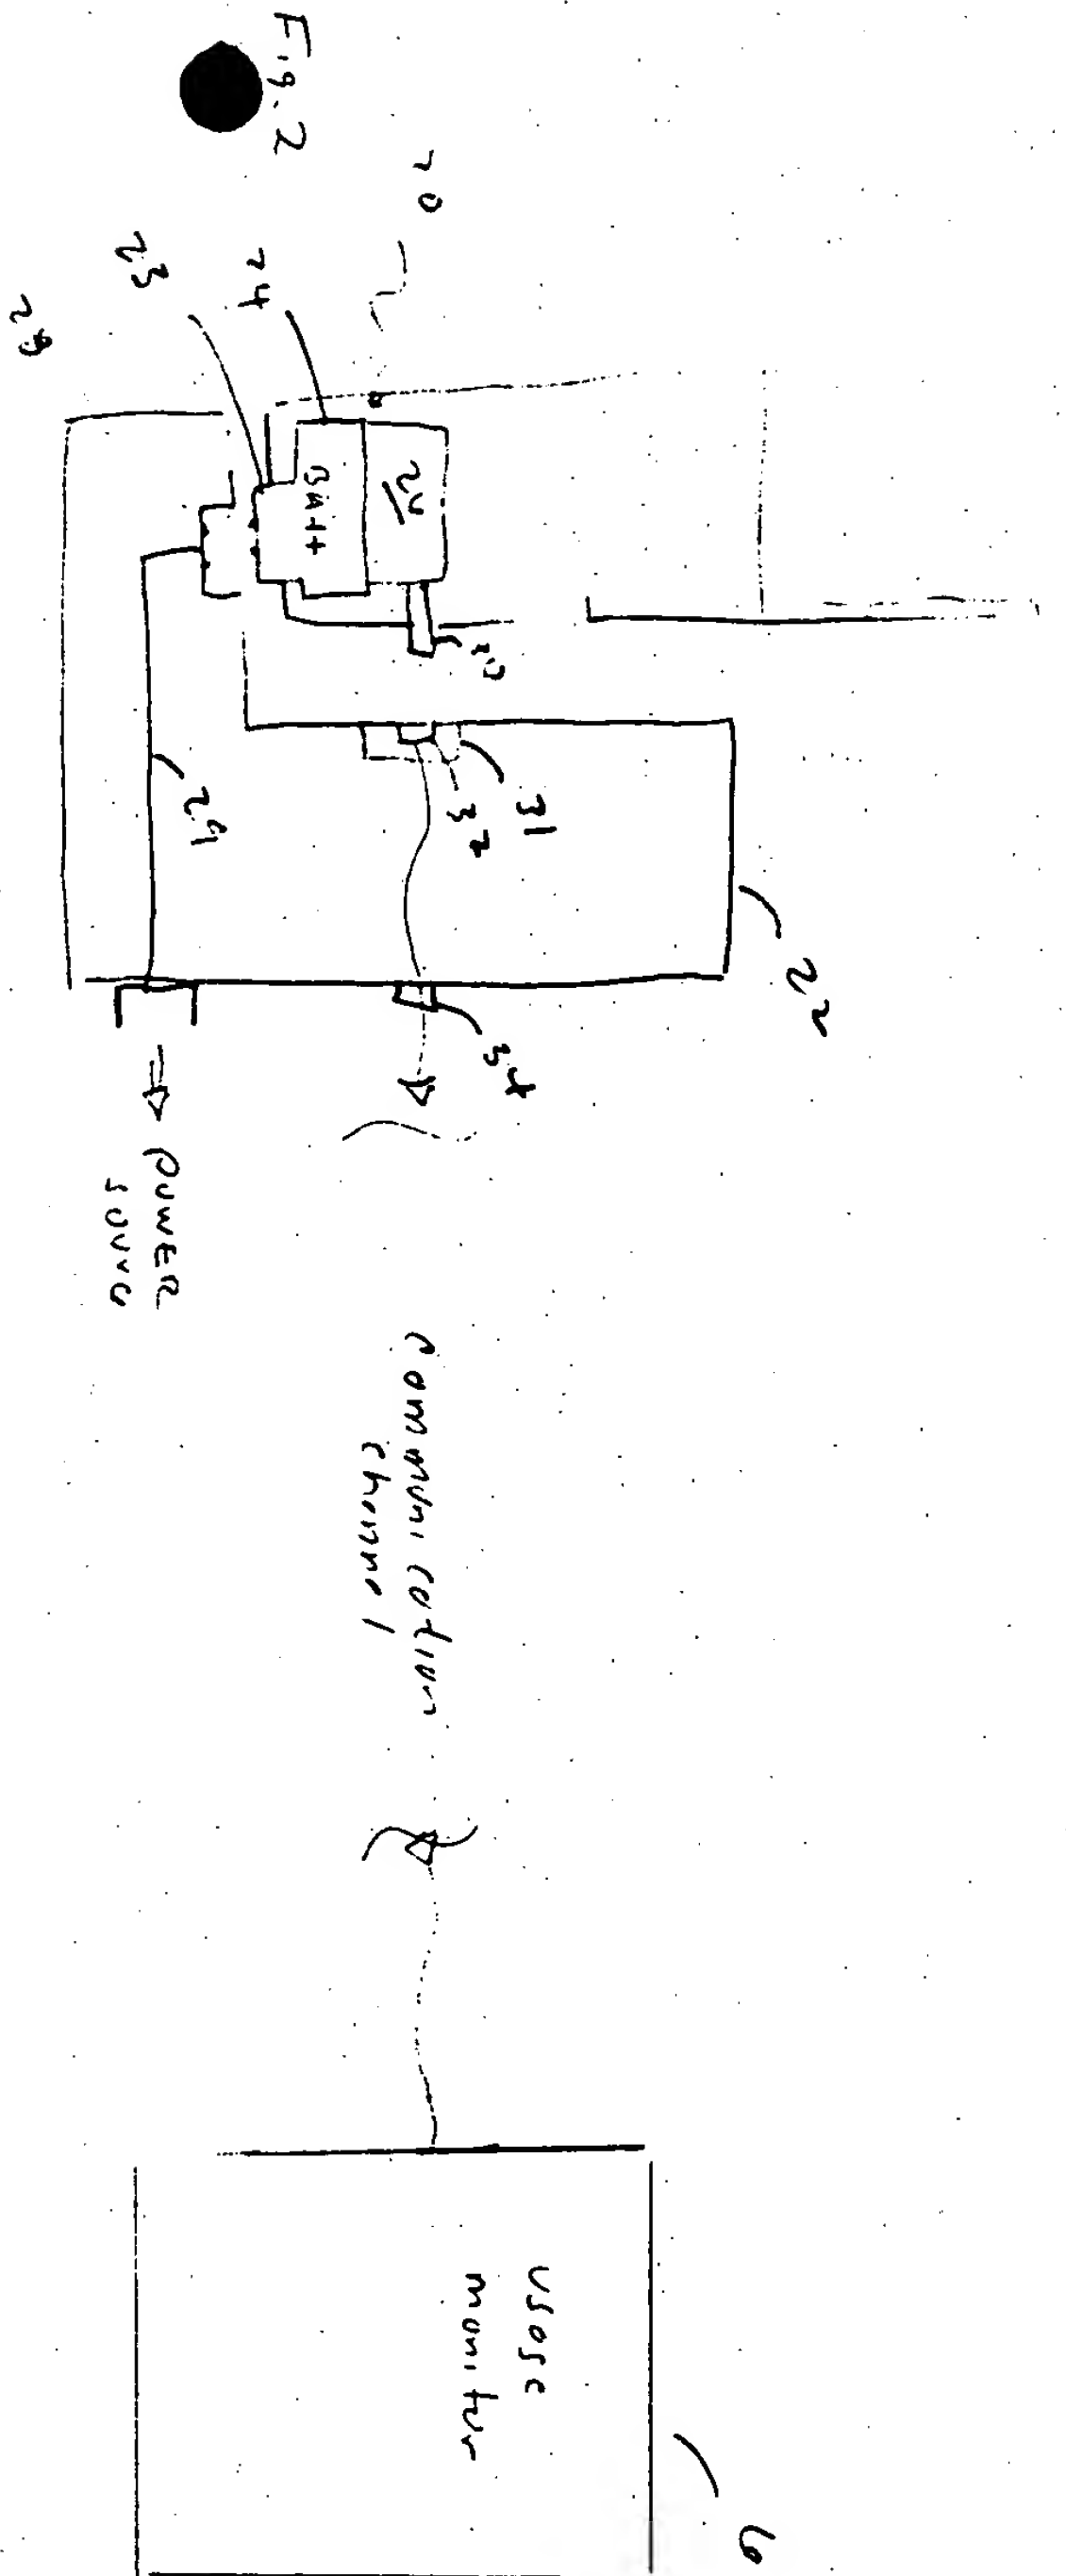 Fig. 2
20
24
23
28
Batt
30
31
32
29
22
34
power
communication
channel
usage
monitor
6